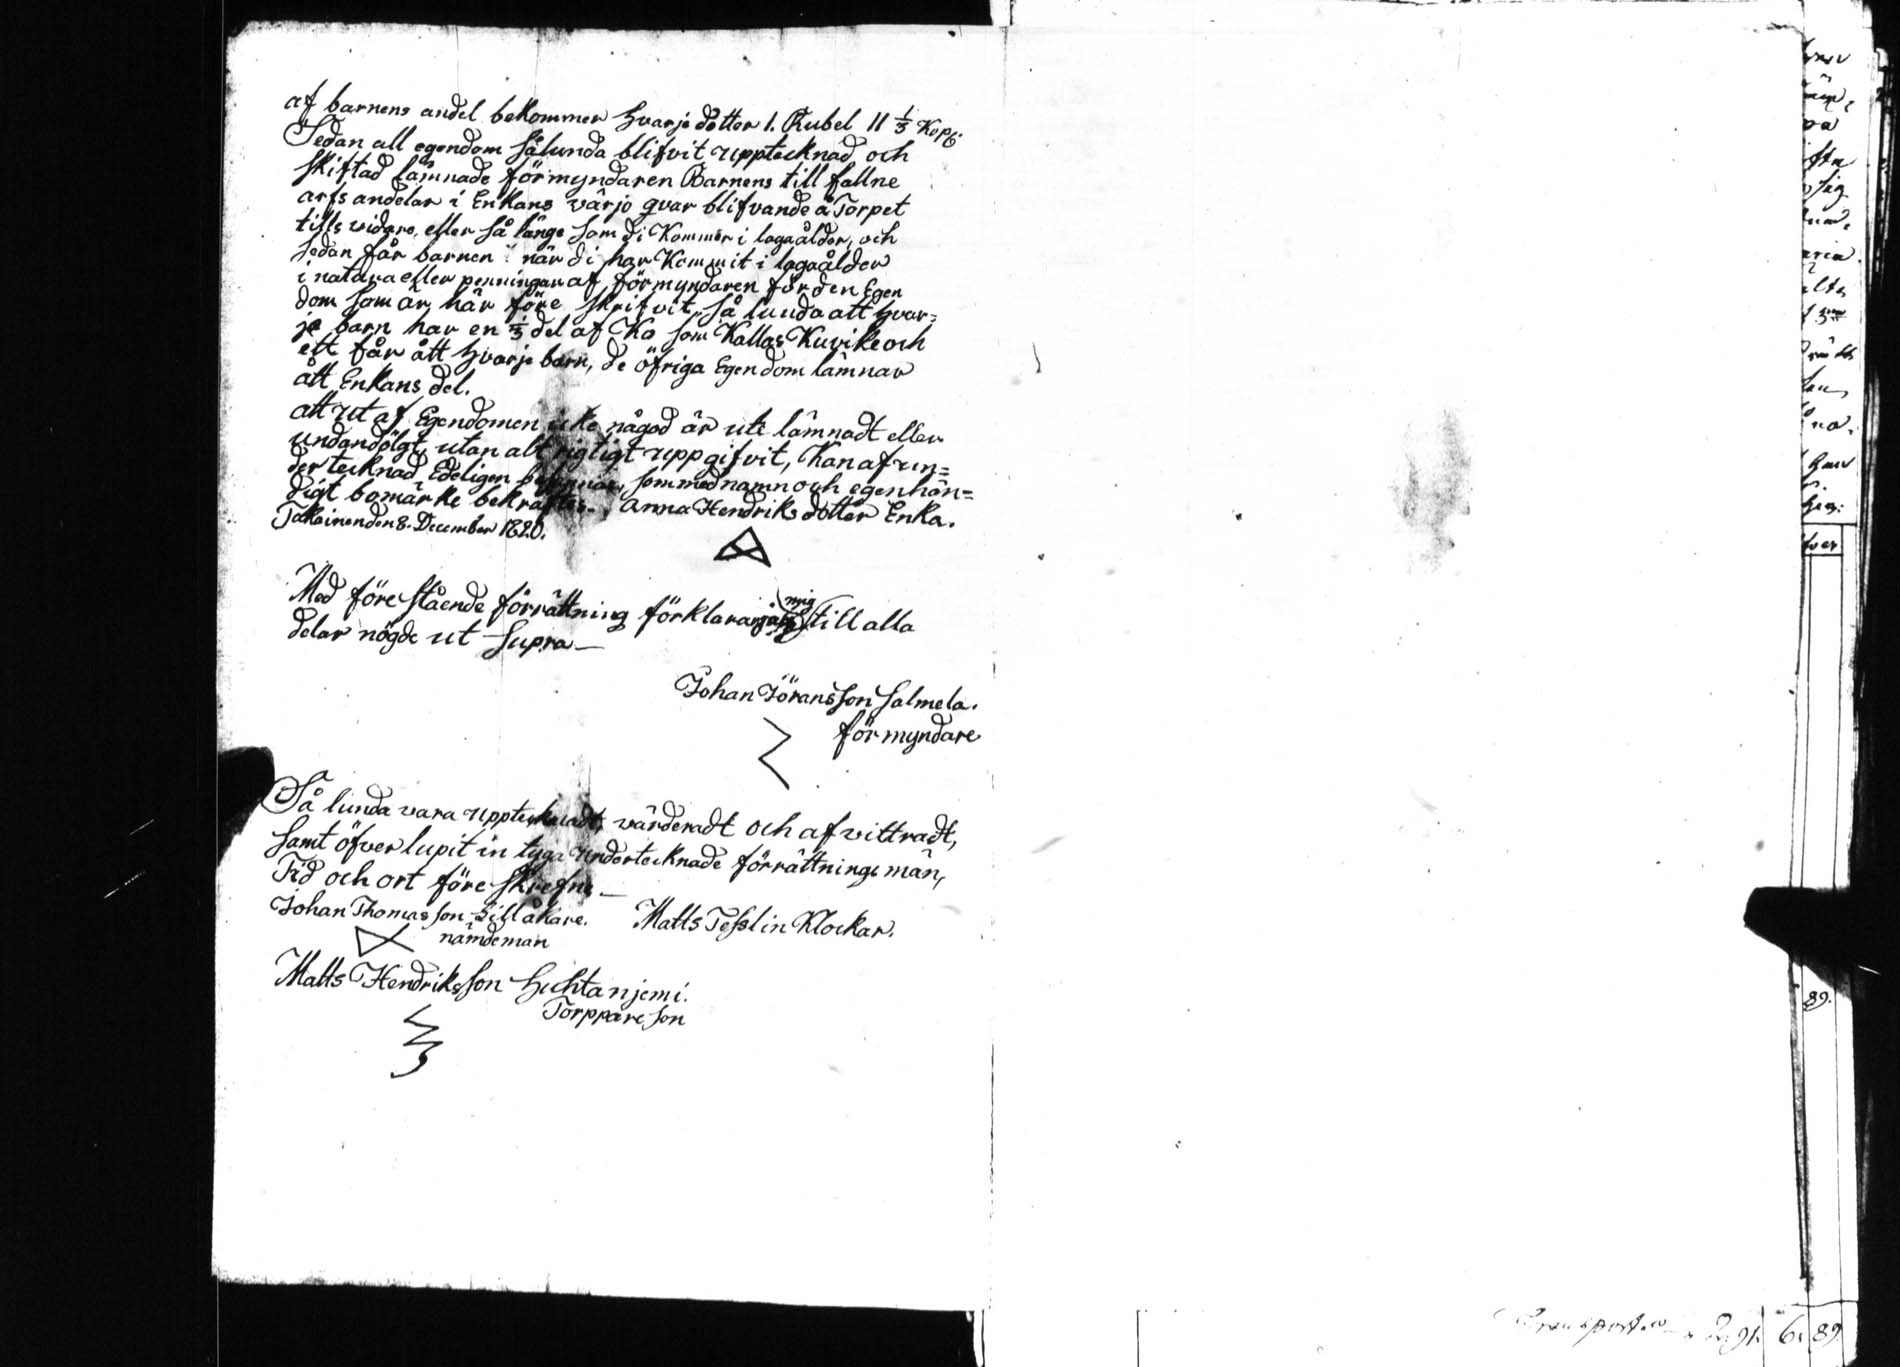 af barnens andel bekommer hvarje dotter 1. Rubel 11 1/3 Kop:
Sedan all egendom Sålunda blifvit upptecknad och
Skiftad lämnade förmyndaren Barnens till fallne
arfs andelar i Enkans värjo qvar blifvande å Torpet
tills vidare, eller Så länge Som di Kommer i lagaålder, och
Sedan får barnen när di har Kommit i lagaålder
i natura eller penningar af förmyndaren för den Egen
dom Som är här före Skrifvit, Så lunda att hvar=
je barn har en 1/3 del af Ko Som Kallas Kuvike och
ett får ått hvarje barn, de öfriga Egendom lämnar
ått Enkans del.
att ut af Egendomen icke någod är ute lämnadt eller
undandölgt, utan alt rigtigt uppgifvit, Kan af un=
der tecknad Edeligen, Som med namn och egenhän=
digt bomärke bekräftes. anna Hendriks dotter Enka.
den 8. December 1820.
Med före Stående förrättning förklarar jag mig till alla
delar nögde ut Supra
Johan Jöransson Salmela.
förmyndare
Så lunda vara upptecknadt, värderadt och af vittradt,
Samt öfver lupit in tyga undertecknade förrättnings män,
Tid och ort före Skrefne
Johan Thomasson Sillåkare. Matts Tesslin Klockar.
nämdeman
Matts Hendriksson Huhtanjemi.
Torppare Son
89.
Transport 2. 91. 6. 89